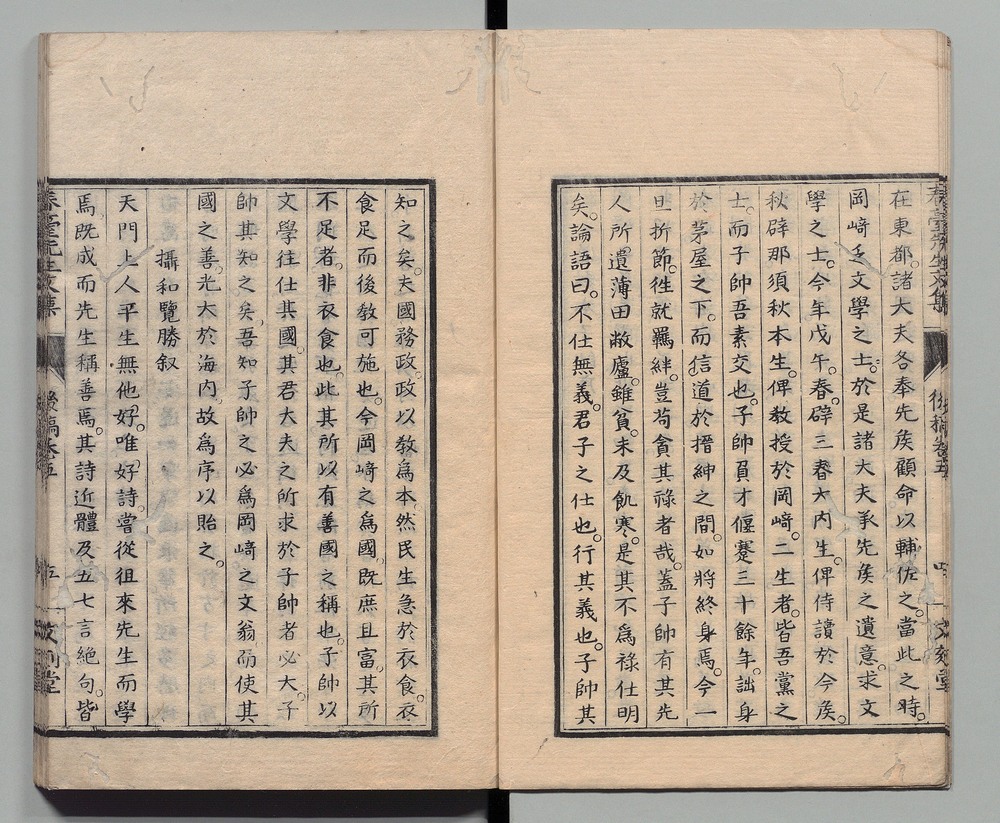 在東都。諸大夫各奉先矦顧命以輔佐之。當此之時。
岡﨑乏文學之士。於是諸大夫承先矦之遺意。求文
學之士。今年戊午。春。辟三春大内生。俾侍讀於今矦。
秋辟那須秋本生。俾教授於岡﨑。二生者。皆吾黨之
士。而子帥吾素交也。子帥負才偃蹇三十餘年。詘身
於茅屋之下。而信道於搢紳之間。如將終身焉。今一
旦折節。徃就羈絆。豈苟貪其祿者哉。蓋子帥有其先
人所遺薄田敝廬。雖貧。未及飢寒。是其不爲祿仕明
矣。論語曰。不仕無義。君子之仕也。行其義也。子帥其
知之矣。夫國務政。政以教爲本。然民生急於衣食。衣
食足而後教可施也。今岡﨑之爲國。既庶且富。其所
不足者。非衣食也。此其所以有善國之稱也。子帥以
文學徃仕其國。其君大夫之所求於子帥者必大。子
帥其知之矣。吾知子帥之必爲岡﨑之文翁。而使其
國之善。光大於海内。故爲序以貽之。
攝和覽勝叙
天門上人平生無他好。唯好詩。嘗從徂來先生而學
焉。既成而先生稱善焉。其詩近體及五七言絶句。皆
春臺先生文集
後稿卷五
五